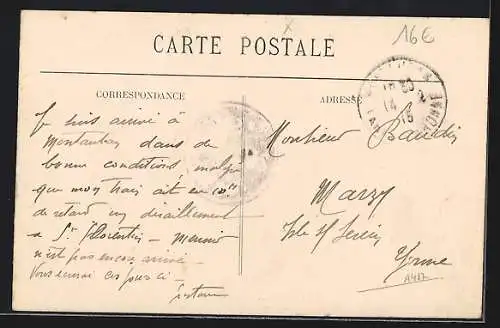 16€
CARTE POSTALE
CORRESPONDANCE
ADRESSE
Je suis arrivé à
Montauban dans de
bonne conditions, malgré
que mon train ait eu
de retard un déraillement
à St Florentin –
n'est pas encore arrivé –
Vous écrirai ces jours ci
Monsieur Baudin
Marzy
Isle s/ Serein
Yonne